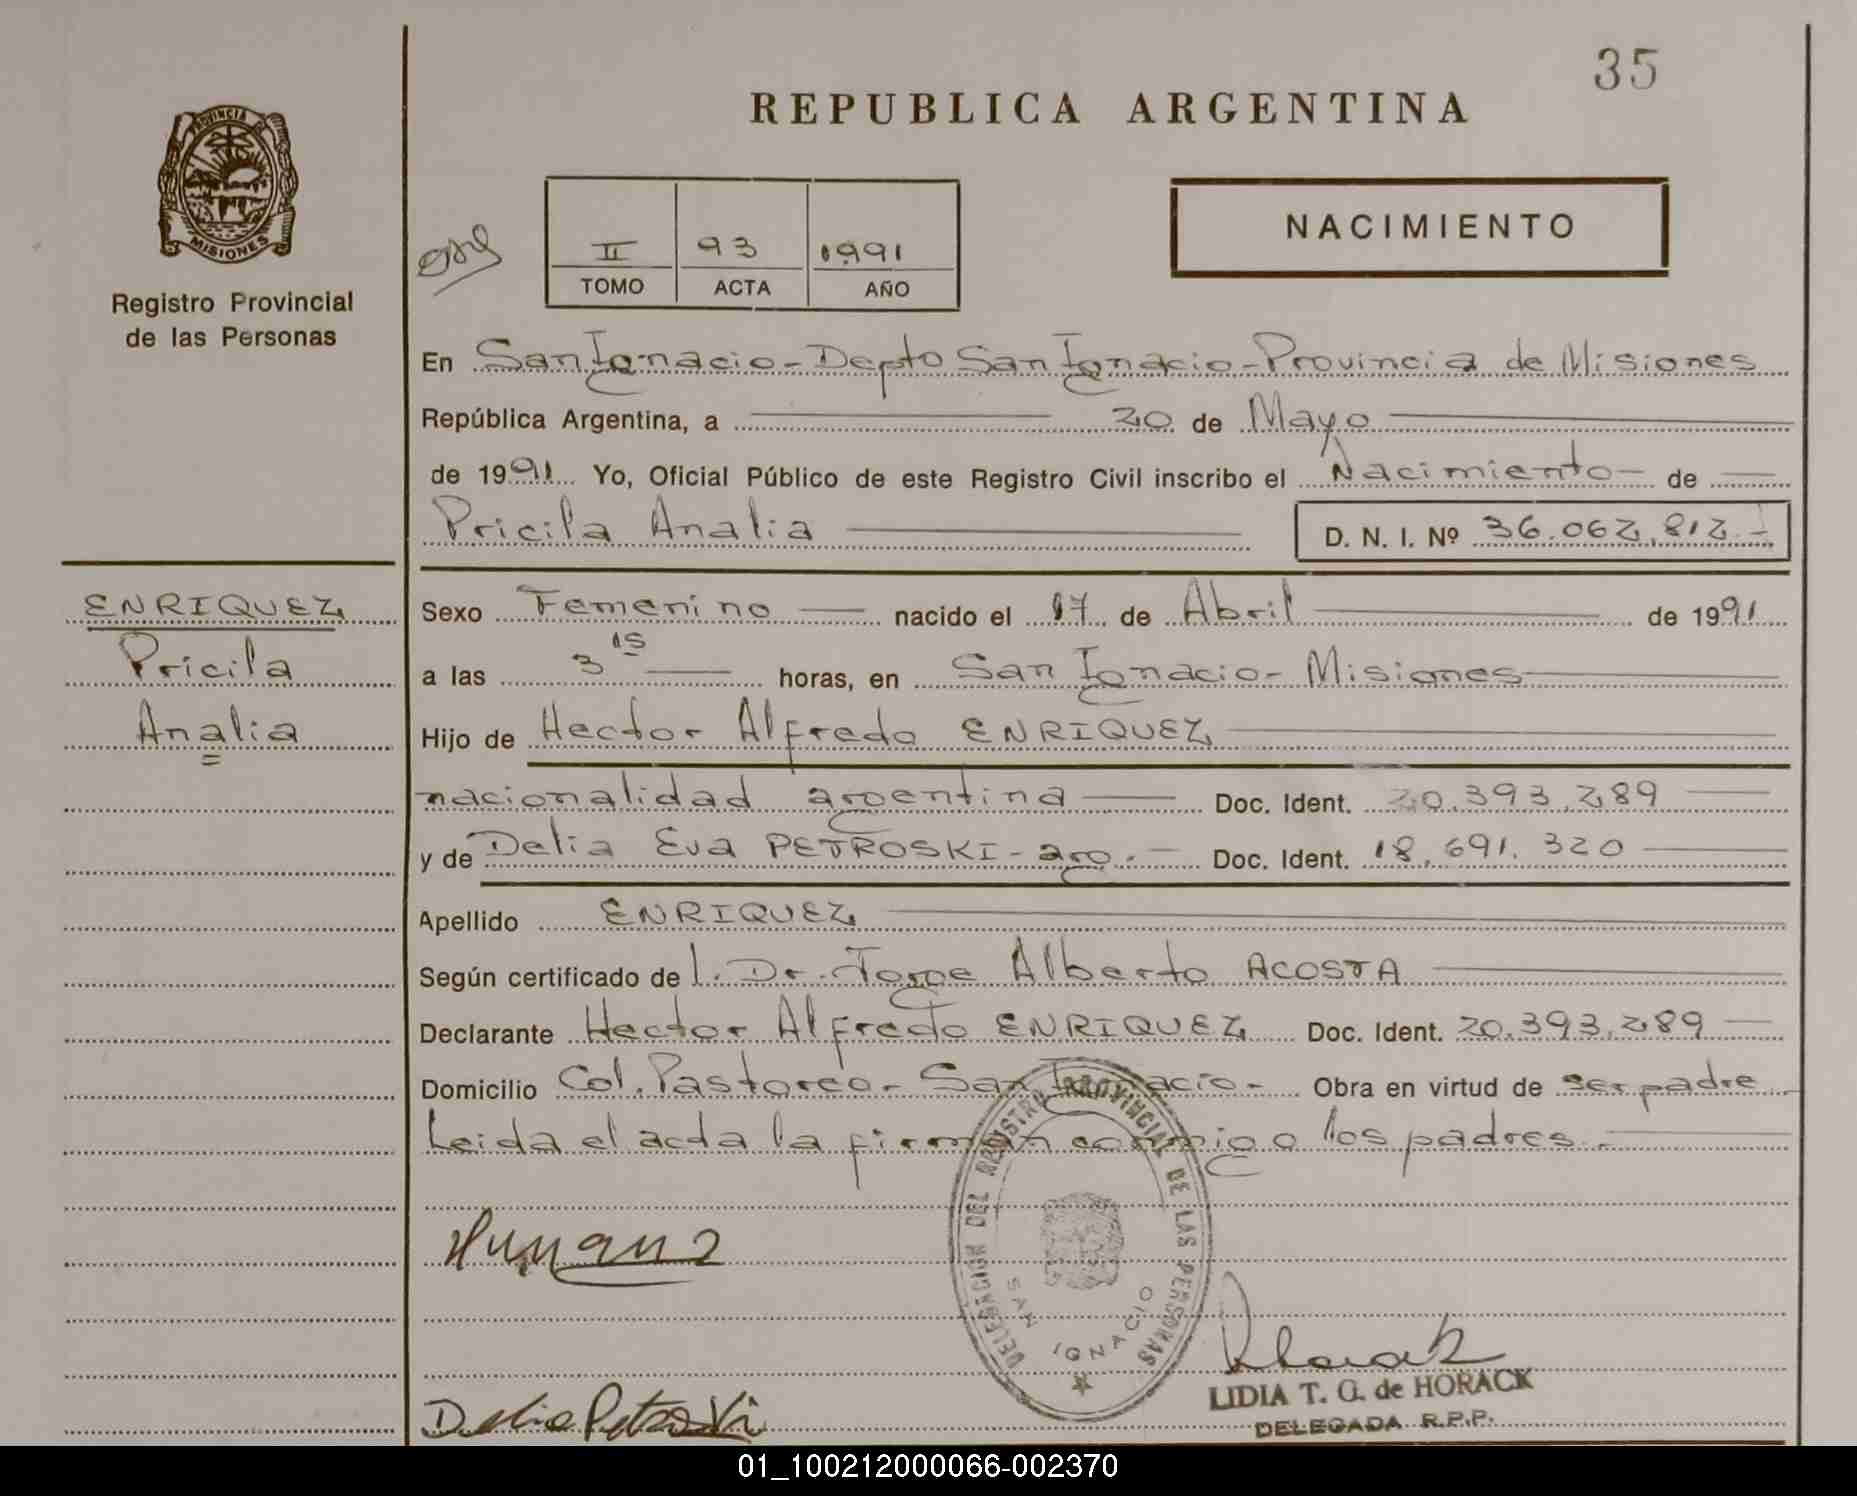 35
REPUBLICA ARGENTINA
PROVINCIA DE
MISIONES
Registro Provincial
de las Personas
II 93 1991
TOMO ACTA AÑO
NACIMIENTO
En San Ignacio - Depto San Ignacio - Provincia de Misiones
República Argentina, a 20 de Mayo
de 1991 Yo, Oficial Público de este Registro Civil inscribo el Nacimiento de
Pricila Analia D. N. I. Nº 36.062.812.-
ENRIQUEZ
Pricila
Analia
Sexo Femenino nacido el 17 de Abril de 1991
a las 3 15 horas, en San Ignacio - Misiones
Hijo de Hector Alfredo ENRIQUEZ
nacionalidad argentina Doc. Ident. 20.393.289
y de Delia Eva PETROSKI - arg. - Doc. Ident. 18.691.320
Apellido ENRIQUEZ
Según certificado de l. Dr. Jorge Alberto ACOSTA
Declarante Hector Alfredo ENRIQUEZ Doc. Ident. 20.393.289
Domicilio Col. Pastoreo - San Ignacio - Obra en virtud de ser padre
Leida el acta la firman conmigo los padres.-
DELEGACION DEL REGISTRO PROVINCIAL DE LAS PERSONAS
SAN IGNACIO
Delia Petroski
LIDIA T. G. de HORACK
DELEGADA R.P.P.
01_100212000066-002370